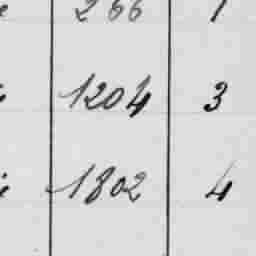 266 1
1204 3
1802 4